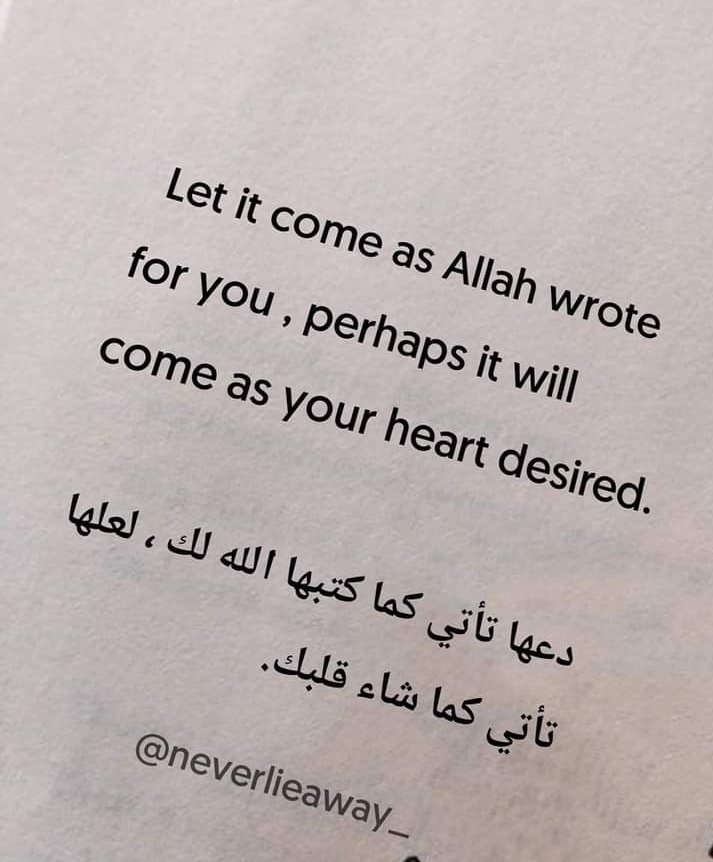 Let it come as Allah wrote
for you , perhaps it will
come as your heart desired.
دعها تأتي كما كتبها الله لك ، لعلها
تأتي كما شاء قلبك.
@neverlieaway_